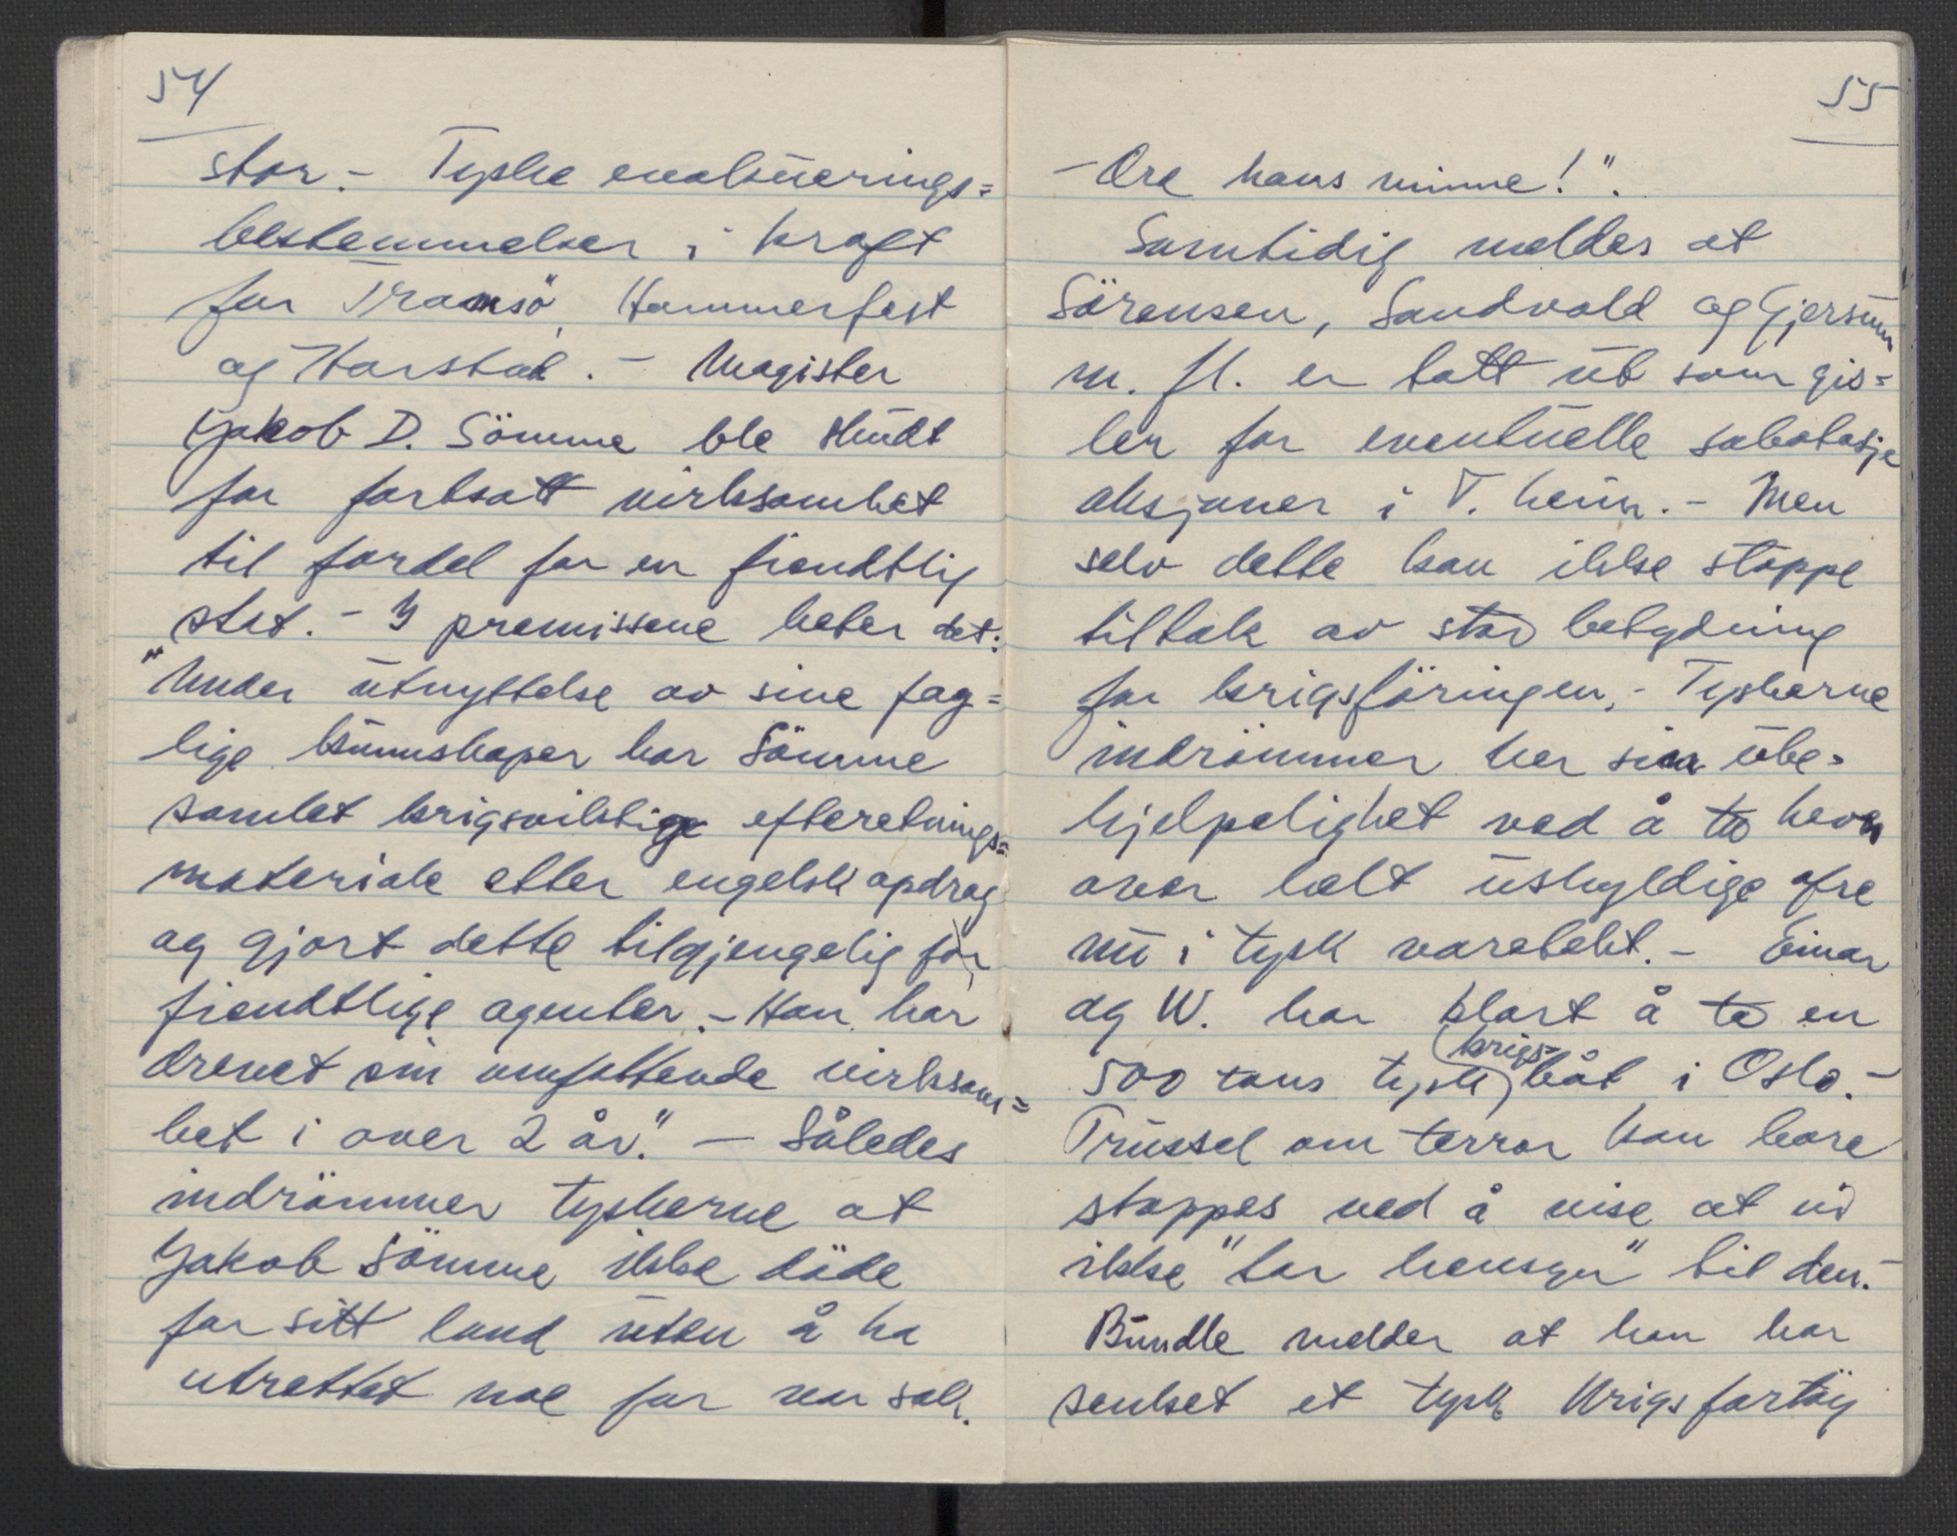 54
stor. - Tyske evakuerings=
bestemmelser i kraft
for Tromsö, Hammerfest
og Harstad. - Magister
Jakob D. Sömme ble skudt
for fortsatt virksomhet
til fordel for en fiendtlig
stat. - I premissene heter det:
"Under utnyttelse av sine fag=
lige kunnskaper har Sömme
samlet krigsviktige efteretnings=
materiale etter engelsk opdrag
og gjort dette tilgjengelig for
fiendtlige agenter. - Han har
drevet sin omfattende virksom=
het i over 2 år." - Således
indrömmer tyskerne at
Jakob Sömme ikke döde
for sitt land uten å ha
utrettet noe for vor sak.
55
- Ære hans minne!".
Samtidig meldes at
Sörensen, Sandvold og Gjersum
m. fl. er tatt ut som gis=
ler for eventuelle sabotasje
aksjoner i T.heim. - Men
selv dette kan ikke stoppe
tiltak av stor betydning
for krigsföringen. - Tyskerne
indrömmer her sin ube=
hjelpelighet ved å ta hevn
over helt uskyldige ofre
nu i tysk varetekt. - Einar
og W. har klart å ta en
500 tons tysk (krigs-) båt i Oslo. -
Trussel om terror kan bare
stoppes ved å vise at vi
ikke "tar hensyn" til den. -
Bundle melder at han har
senket et tysk krigsfartöy